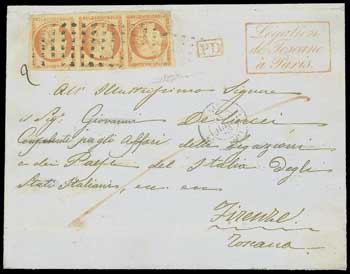 PD
Légation
de Toscane
à Paris.
All' Illustrissimo Signore
il Sig. Giovanni
Computante pegli Affari delle
e dei Paesi del Italia Degli
Stati Italiani,
Firenze
Toscana